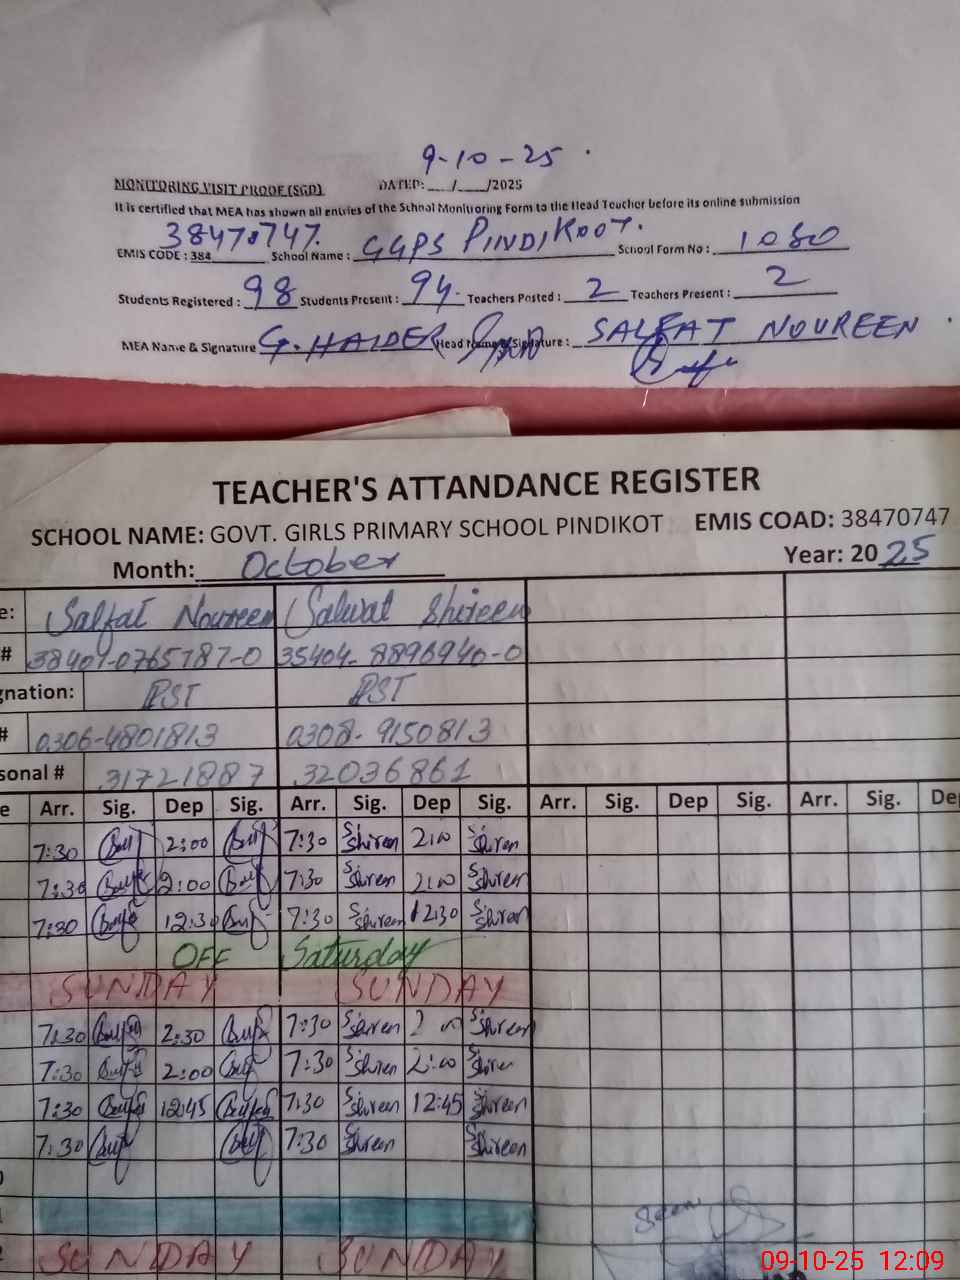 9-10-25
MONITORING VISIT PROOF (SGD) DATED: __/__/2025
It is certified that MEA has shown all entries of the School Monitoring Form to the Head Teacher before its online submission
EMIS CODE : 384 38470747. School Name : GGPS PINDIKOOT. School Form No : 1080
Students Registered : 98 Students Present : 94 Teachers Posted : 2 Teachers Present : 2
MEA Name & Signature G. HAIDER Head Name & Signature : SALFAT NOUREEN
TEACHER'S ATTANDANCE REGISTER
SCHOOL NAME: GOVT. GIRLS PRIMARY SCHOOL PINDIKOT EMIS COAD: 38470747
Month: October Year: 2025
e: Salfat Noureen Salwat Shireen
# 38401-0765787-0 35404-8896940-0
gnation: PST PST
# 0306-4801813 0308-9150813
sonal # 31721887 32036861
e Arr. Sig. Dep Sig. Arr. Sig. Dep Sig. Arr. Sig. Dep Sig. Arr. Sig. De
7:30 2:00 7:30 S.Shiren 2:00 S.Shiren
7:30 2:00 7:30 S.Shiren 2:00 S.Shiren
7:30 12:30 7:30 S.Shiren 12:30 S.Shiren
OFF Saturday
SUNDAY SUNDAY
7:30 2:30 7:30 S.Shiren 2:00 S.Shiren
7:30 2:00 7:30 S.Shiren 2:00 S.Shiren
7:30 12:45 7:30 S.Shireen 12:45 S.Shireen
7:30 7:30 S.Shireen S.Shireen
Seen
SUNDAY SUNDAY
09-10-25 12:09